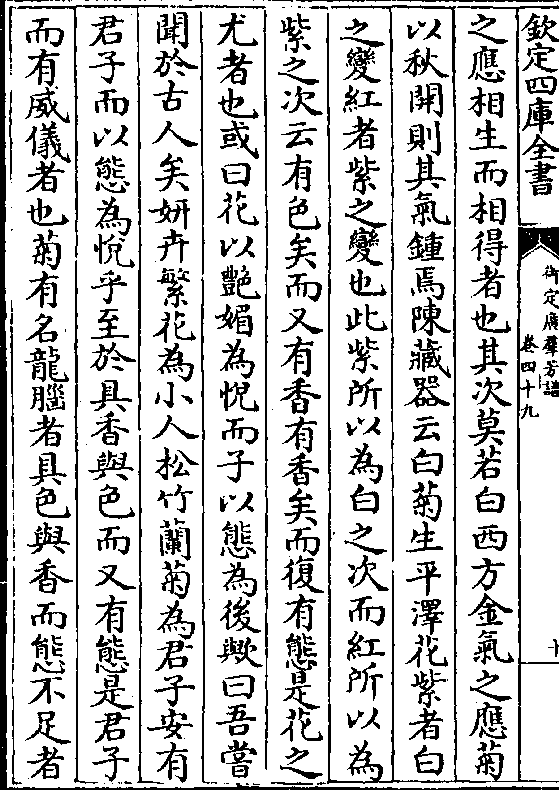 欽定四庫全書
御定廣羣芳譜
卷四十九
十
之應相生而相得者也其次莫若白西方金氣之應菊
以秋開則其氣鍾焉陳藏器云白菊生平澤花紫者白
之變紅者紫之變也此紫所以為白之次而紅所以為
紫之次云有色矣而又有香有香矣而復有態是花之
尤者也或曰花以艷媚為悅而子以態為後歟曰吾嘗
聞於古人矣妍卉繁花為小人松竹蘭菊為君子安有
君子而以態為悅乎至於具香與色而又有態是君子
而有威儀者也菊有名龍腦者具色與香而態不足者